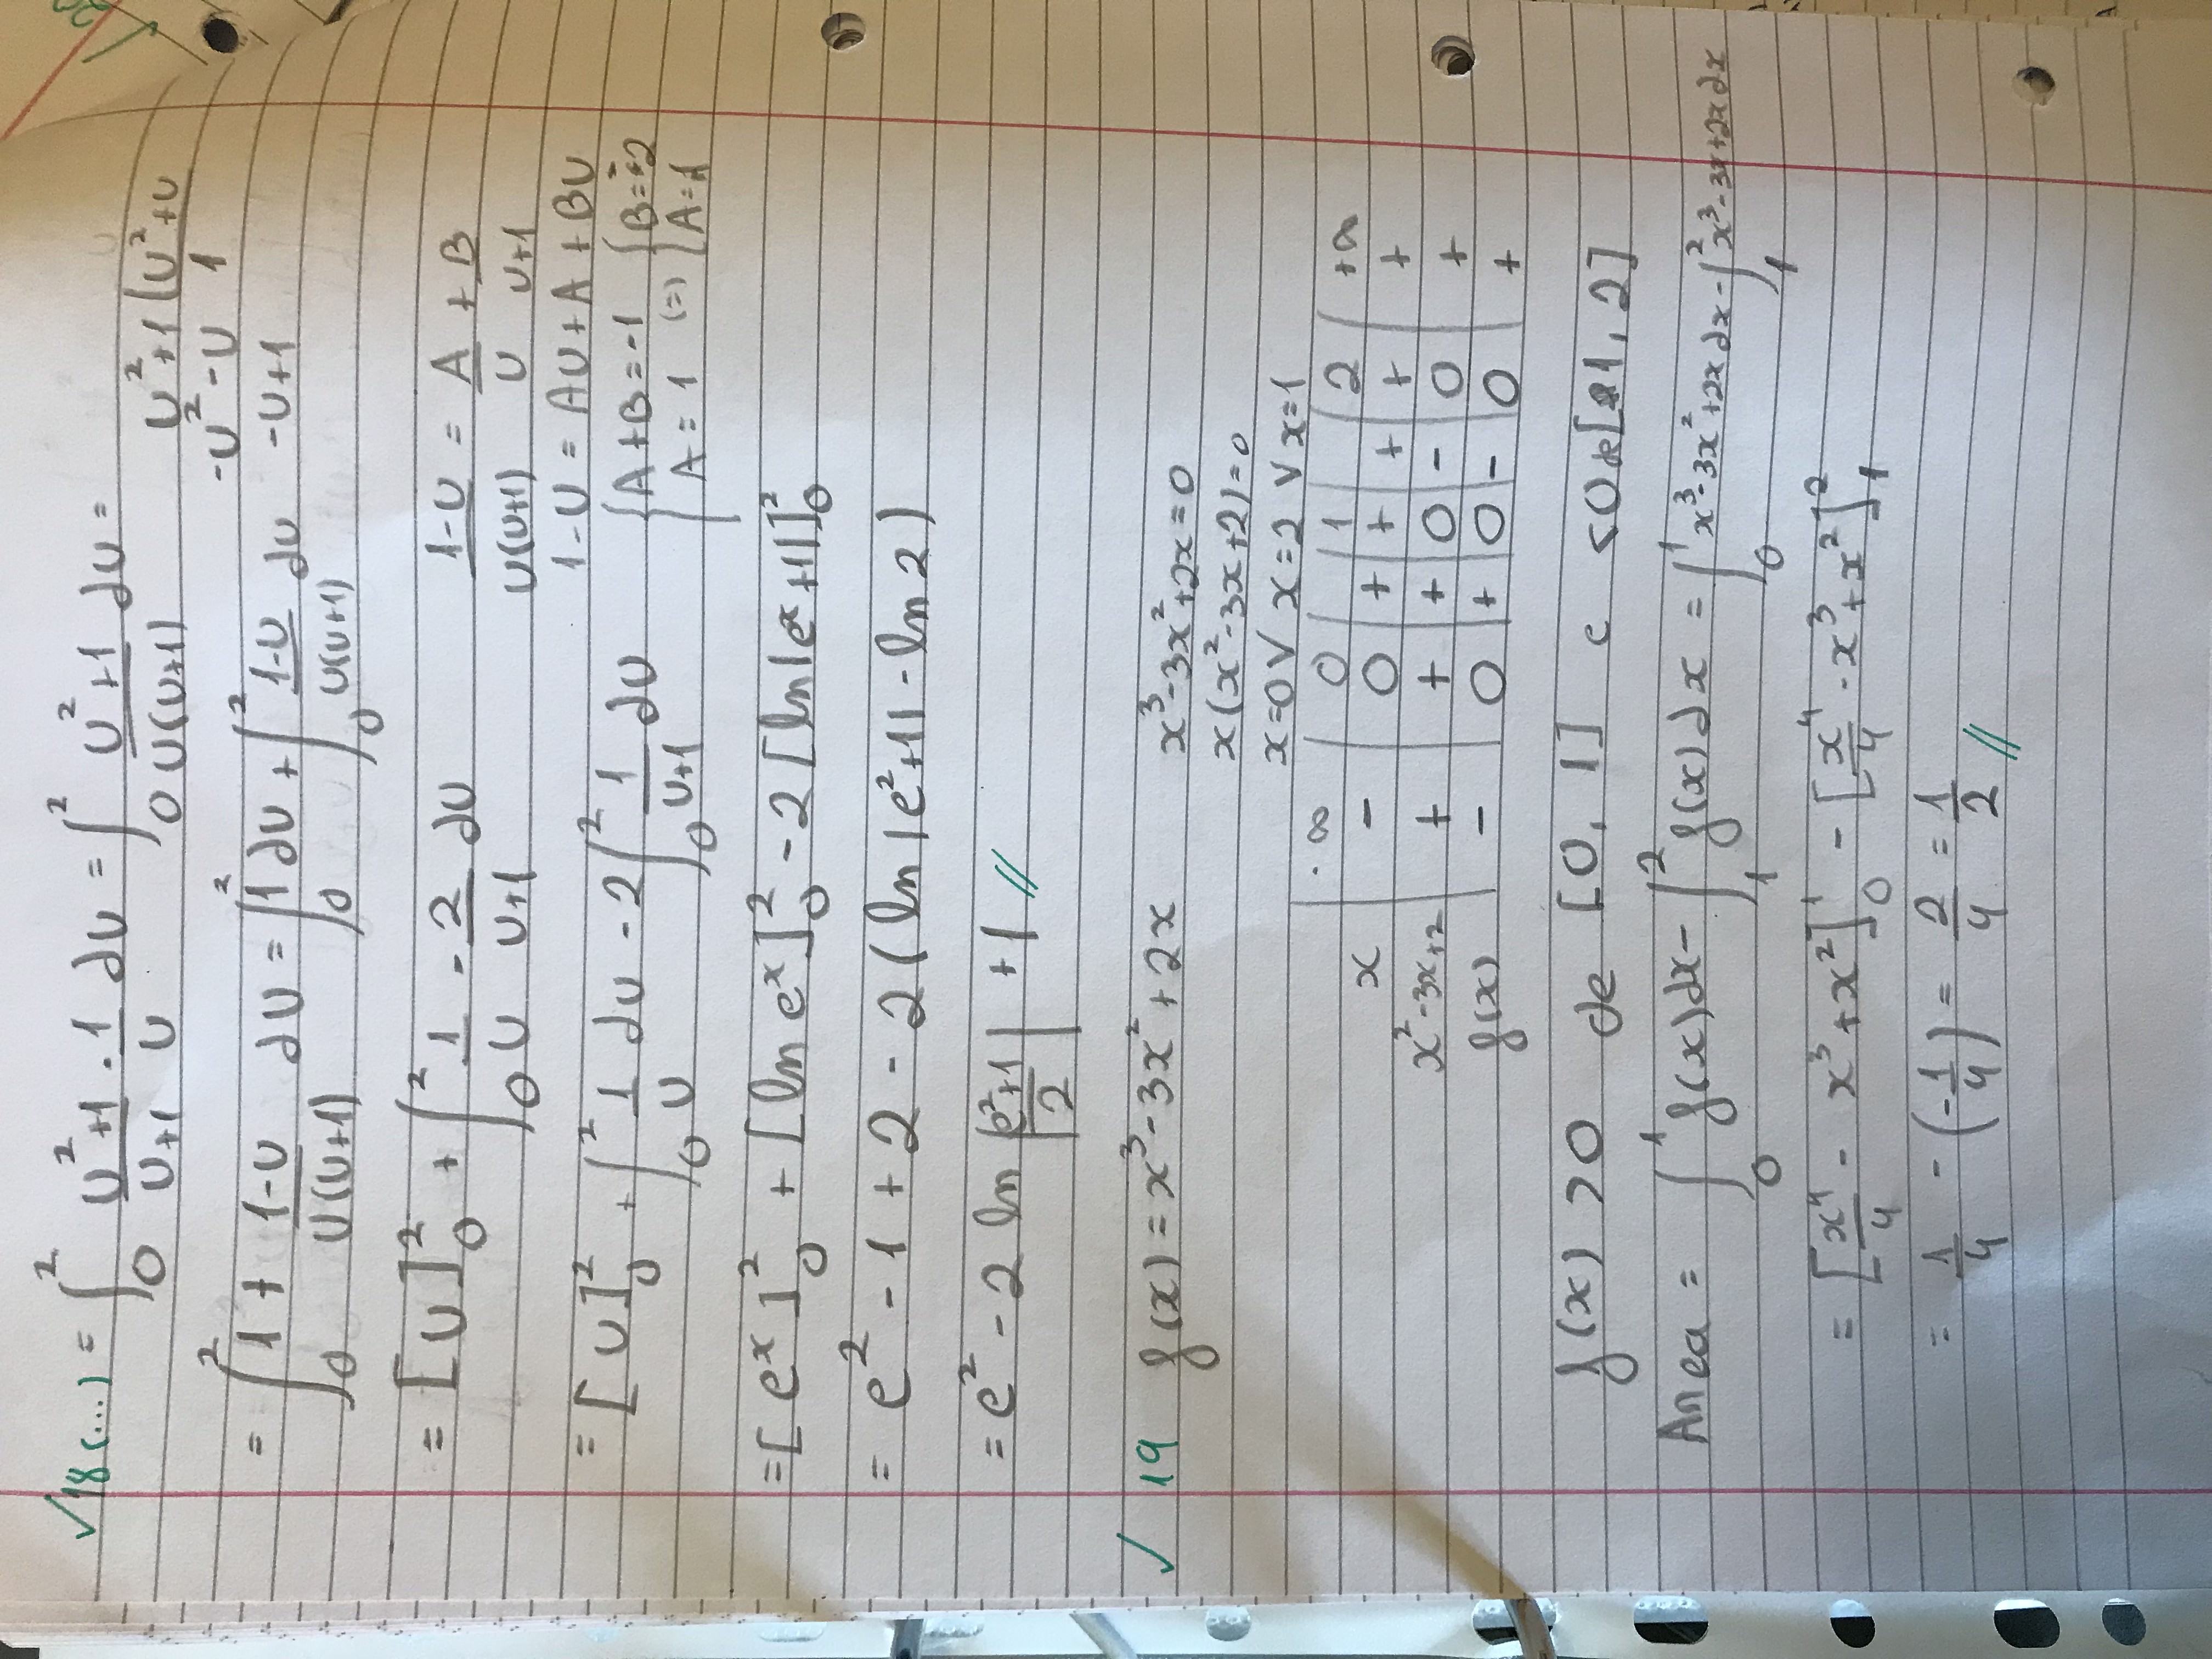 ✓ 18 (...) = ∫₀² (U²+1)/(U+1) · 1/U dU = ∫₀² (U²+1)/(U(U+1)) dU =
U²+1 | U²+U
-U²-U 1
-U+1
= ∫₀² 1 + (1-U)/(U(U+1)) dU = ∫₀² 1 dU + ∫₀² (1-U)/(U(U+1)) dU
= [U]₀² + ∫₀² 1/U - 2/(U+1) dU
(1-U)/(U(U+1)) = A/U + B/(U+1)
1-U = AU+A+BU
{A+B=-1 {B=-2
A=1 (=) A=1
= [U]₀² + ∫₀² 1/U dU - 2∫₀² 1/(U+1) dU
= [e^x]₀² + [ln e^x]₀² - 2[ln|e^x+1|]₀²
= e² - 1 + 2 - 2(ln|e²+1| - ln 2)
= e² - 2 ln |(e²+1)/2| + 1 //
✓ 19 f(x) = x³-3x²+2x
x³-3x²+2x=0
x(x²-3x+2)=0
x=0 ∨ x=2 ∨ x=1
-∞ 0 1 2 +∞
x - 0 + + + + +
x²-3x+2 + + + 0 - 0 +
f(x) - 0 + 0 - 0 +
f(x) >0 de [0, 1] e <0 de [1, 2]
Area = ∫₀¹ f(x)dx - ∫₁² f(x)dx = ∫₀¹ x³-3x²+2x dx - ∫₁² x³-3x+2x dx
= [x⁴/4 - x³+x²]₀¹ - [x⁴/4 - x³+x²]₁²
= 1/4 - (-1/4) = 2/4 = 1/2 //